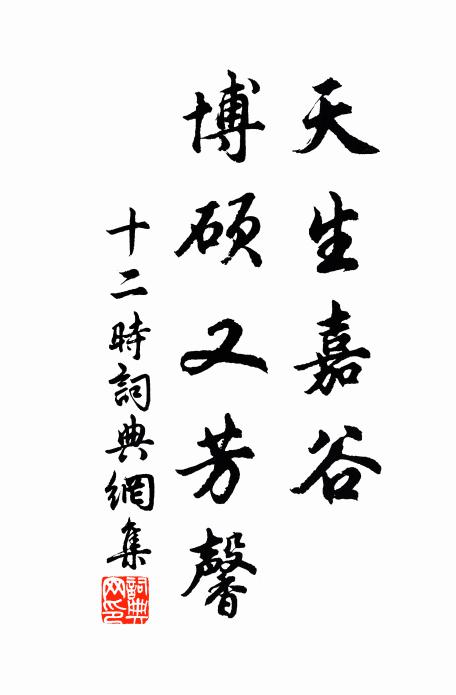 天生嘉谷
博硕又芳馨
十二時詞典網集
詞典網印